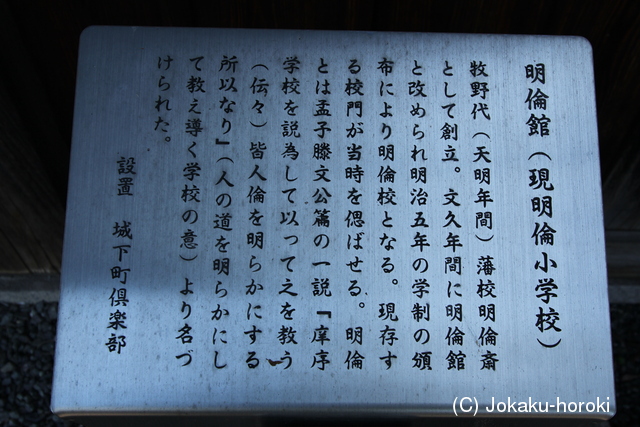 明倫館（現明倫小学校）
牧野代（天明年間）藩校明倫斎
として創立。文久年間に明倫館
と改められ明治五年の学制の頒
布により明倫校となる。現存す
る校門が当時を偲ばせる。明倫
とは孟子滕文公篇の一説『庠序
学校を説為して以って之を教う
（伝々）皆人倫を明らかにする
所以なり』（人の道を明らかにし
て教え導く学校の意）より名づ
けられた。
設置　城下町倶楽部
(C) Jokaku-horoki